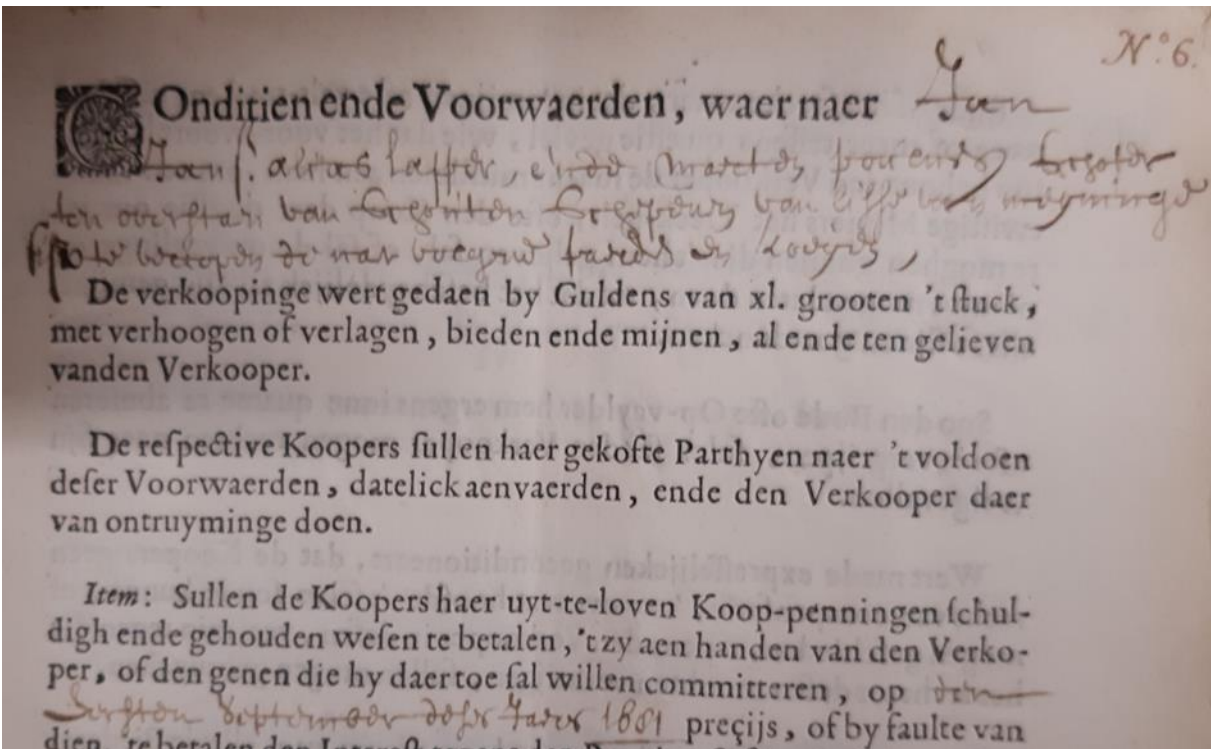 N:o 6.
COnditien ende Voorwaerden, waer naer Jan
Jans. alias Laffer, ende Marten
ten overstaen van van
te de naer
De verkoopinge wert gedaen by Guldens van xl. grooten 't ſtuck,
met verhoogen of verlagen, bieden ende mijnen, al ende ten gelieven
vanden Verkooper.
De reſpective Koopers ſullen haer gekofte Parthyen naer 't voldoen
deſer Voorwaerden, datelick aenvaerden, ende den Verkooper daer
van ontruyminge doen.
Item: Sullen de Koopers haer uyt-te-loven Koop-penningen ſchul-
digh ende gehouden weſen te betalen, 't zy aen handen van den Verko-
per, of den genen die hy daer toe ſal willen committeren, op den
September deser Jaers 1681 preçijs, of by faulte van
dien, te betalen den Intereſt